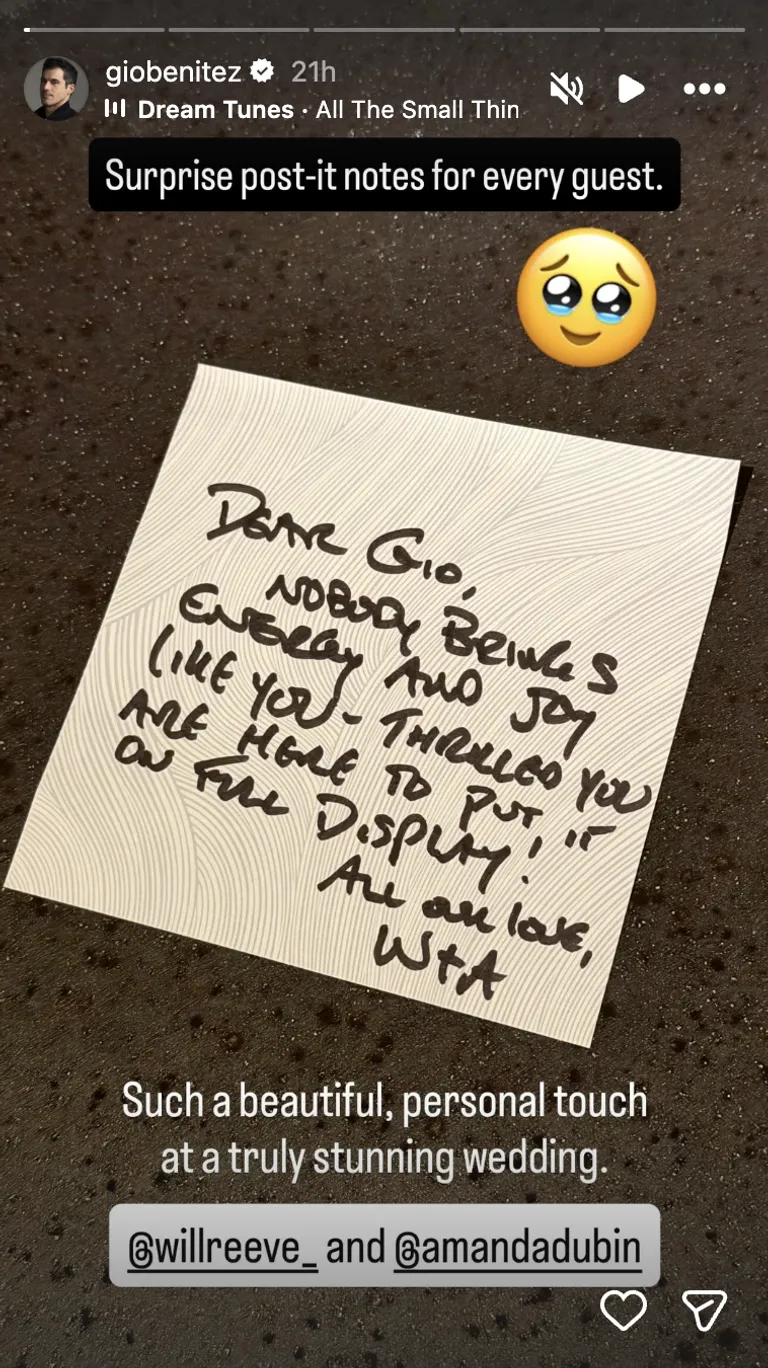 giobenitez 21h
Dream Tunes · All The Small Thin
Surprise post-it notes for every guest.
DEAR GIO,
NOBODY BRINGS
ENERGY AND JOY
LIKE YOU - THRILLED YOU
ARE HERE TO PUT IT
ON FULL DISPLAY!
ALL OUR LOVE,
W+A
Such a beautiful, personal touch
at a truly stunning wedding.
@willreeve_ and @amandadubin